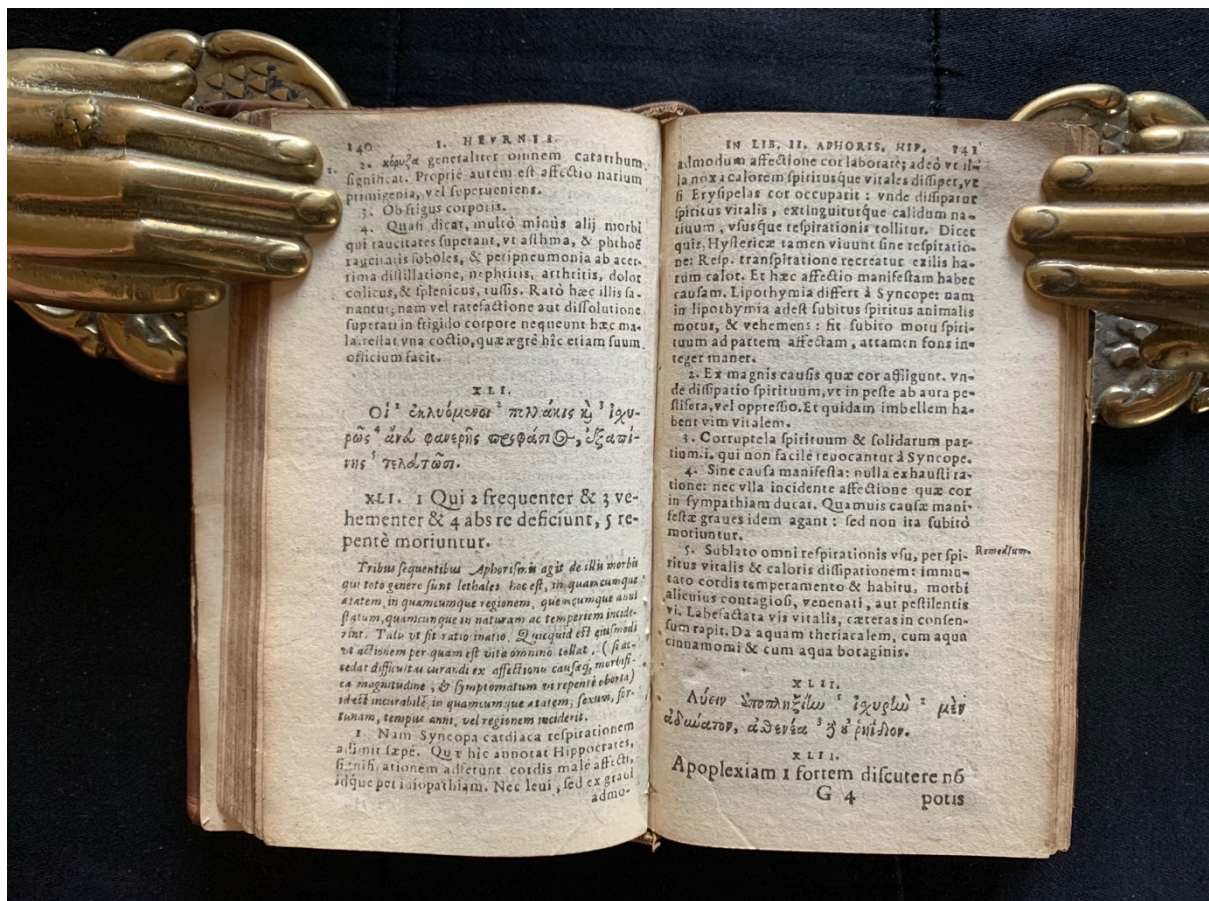 140 I. HEVRNII.
2. κόρυζα generaliter omnem catarrhum
significat. Propriè autem est affectio narium
primigenia, vel superueniens.
3. Ob frigus corporis.
4. Quasi dicat, multò minùs alij morbi
qui raucitates superant, vt asthma, & phthoë
raucitatis soboles, & peripneumonia ab acer-
rima distillatione, nephritis, arthritis, dolor
colicus, & splenicus, tussis. Rarò hæc illis sa-
nantur, nam vel rarefactione aut dissolutione
superati in frigido corpore nequeunt hæc ma-
la. restat vna coctio, quæ ægrè hîc etiam suum
officium facit.
XLI.
Οἱ ² ἐκλυόμενοι ² πολλάκις κỳ ³ ἰχυ-
ρῶς ⁴ ἄνευ φανερῆς προφάσιος, ἐξαπί-
νης ⁵ τελευτῶσι.
XLI. 1 Qui 2 frequenter & 3 ve-
hementer & 4 abs re deficiunt, 5 re-
pentè moriuntur.
Tribus sequentibus Aphorismis agit de illis morbis
qui toto genere sunt lethales hoc est, in quamcumque
ætatem, in quamcumque regionem, quemcumque anni
statum, quamcunque in naturam ac temperiem incide-
rint. Talis vt sit ratio inatio. Quicquid est eiusmodi
vt actionem per quam est vita omnino tollat, (si ac-
cedat difficultas curandi ex affectionis causæq; morbifi-
cæ magnitudine, & symptomatum vi repentè oborta)
id est incurabile, in quamcumque ætatem, sexum, for-
tunam, tempus anni, vel regionem inciderit.
1 Nam Syncopa cardiaca respirationem
adimit sæpè. Quæ hîc annotat Hippocrates,
significationem adferunt cordis malè affecti,
idque per idiopathiam. Nec leui, sed ex graui
admo-
IN LIB. II. APHORIS. HIP. 141
admodum affectione cor laborare; adeò vt il-
la noxa calorem spiritusque vitales dissipet, vt
si Erysipelas cor occuparit : vnde dissipatur
spiritus vitalis, extinguiturque calidum na-
tiuum, vsusque respirationis tollitur. Dicet
quis, Hystericæ tamen viuunt sine respiratio-
ne: Resp. transpiratione recreatur exilis ha-
rum calor. Et hæc affectio manifestam habet
causam. Lipothymia differt à Syncope: nam
in lipothymia adest subitus spiritus animalis
motus, & vehemens : fit subito motu spiri-
tuum ad partem affectam, attamen fons in-
teger manet.
2. Ex magnis causis quæ cor affligunt. vn-
de dissipatio spirituum, vt in peste ab aura pe-
stifera, vel oppressio. Et quidam imbellem ha-
bent vim vitalem.
3. Corruptela spirituum & solidarum par-
tium. i. qui non facilè reuocantur à Syncope.
4. Sine causa manifesta: nulla exhausti ra-
tione: nec vlla incidente affectione quæ cor
in sympathiam ducat. Quamuis causæ mani-
festæ graues idem agant : sed non ita subitò
moriuntur.
5. Sublato omni respirationis vsu, per spi- Remedium.
ritus vitalis & caloris dissipationem: immu-
tato cordis temperamento & habitu, morbi
alicuius contagiosi, venenati, aut pestilentis
vi. Labefactata vis vitalis, cæteras in consen-
sum rapit. Da aquam theriacalem, cum aqua
cinnamomi & cum aqua boraginis.
XLII.
Λύειν ἀποπληξίην ¹ ἰχυρὴν ² μὲν
ἀδύνατον, ἀσθενέα ³ ἢ οὐ ῥηΐδιον.
XLII.
Apoplexiam 1 fortem discutere nō
G 4 potis